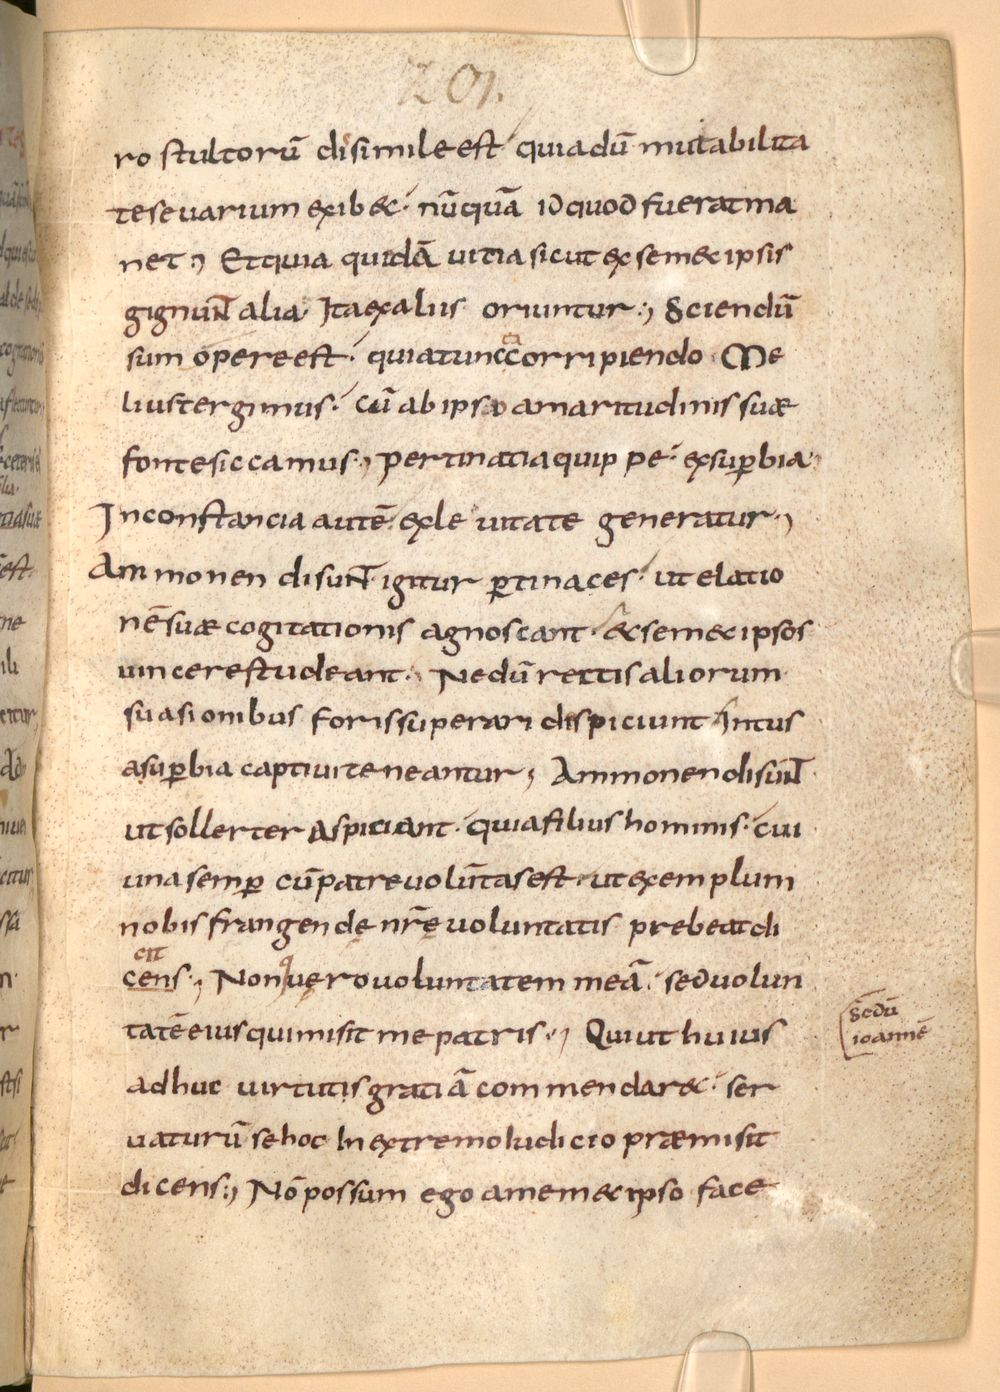 201.
ro stultorū disimile est quia dū mutabilita
te se uarium exib&· nūquā id quod fuerat ma
net ; Et quia quidā uitia sicut ex sem&ipsis
gignuNT alia· Ita ex aliis oriuntur ; Sciendū
sum opere est· quia tunc ea corripiendo Me
lius tergimus· cū ab ipso amaritudinis suæ
fonte siccamus ; pertinatia quippe· ex sup̄bia ;
Inconstantia autē ex leuitate generatur ;
Ammonendi suNT· igitur p̄tinaces· ut elatio
nē suæ cogitationis agnoscant· & sem&ipsos
uincere studeant· Ne dū rectis aliorum
suasionibus foris superari dispiciunt intus
a sup̄bia captiui teneantur ; Ammonendi suNT
ut sollerter aspiciant· quia filius hominis· cui
una semp̄ cū patre uolūtas est· ut exemplum
nobis frangendę nr̄ę uoluntatis prebeat di
cit
cens ; Non quęro uoluntatem meā· sed uolun
tatē eius qui misit me patris ; Qui ut huius
sc̄dū
ioannē
adhuc uirtutis gratiā commendar&· ser
uaturū se hoc In extremo Iudicio præmisit
dicens ; Nō possum ego a mem&ipso face